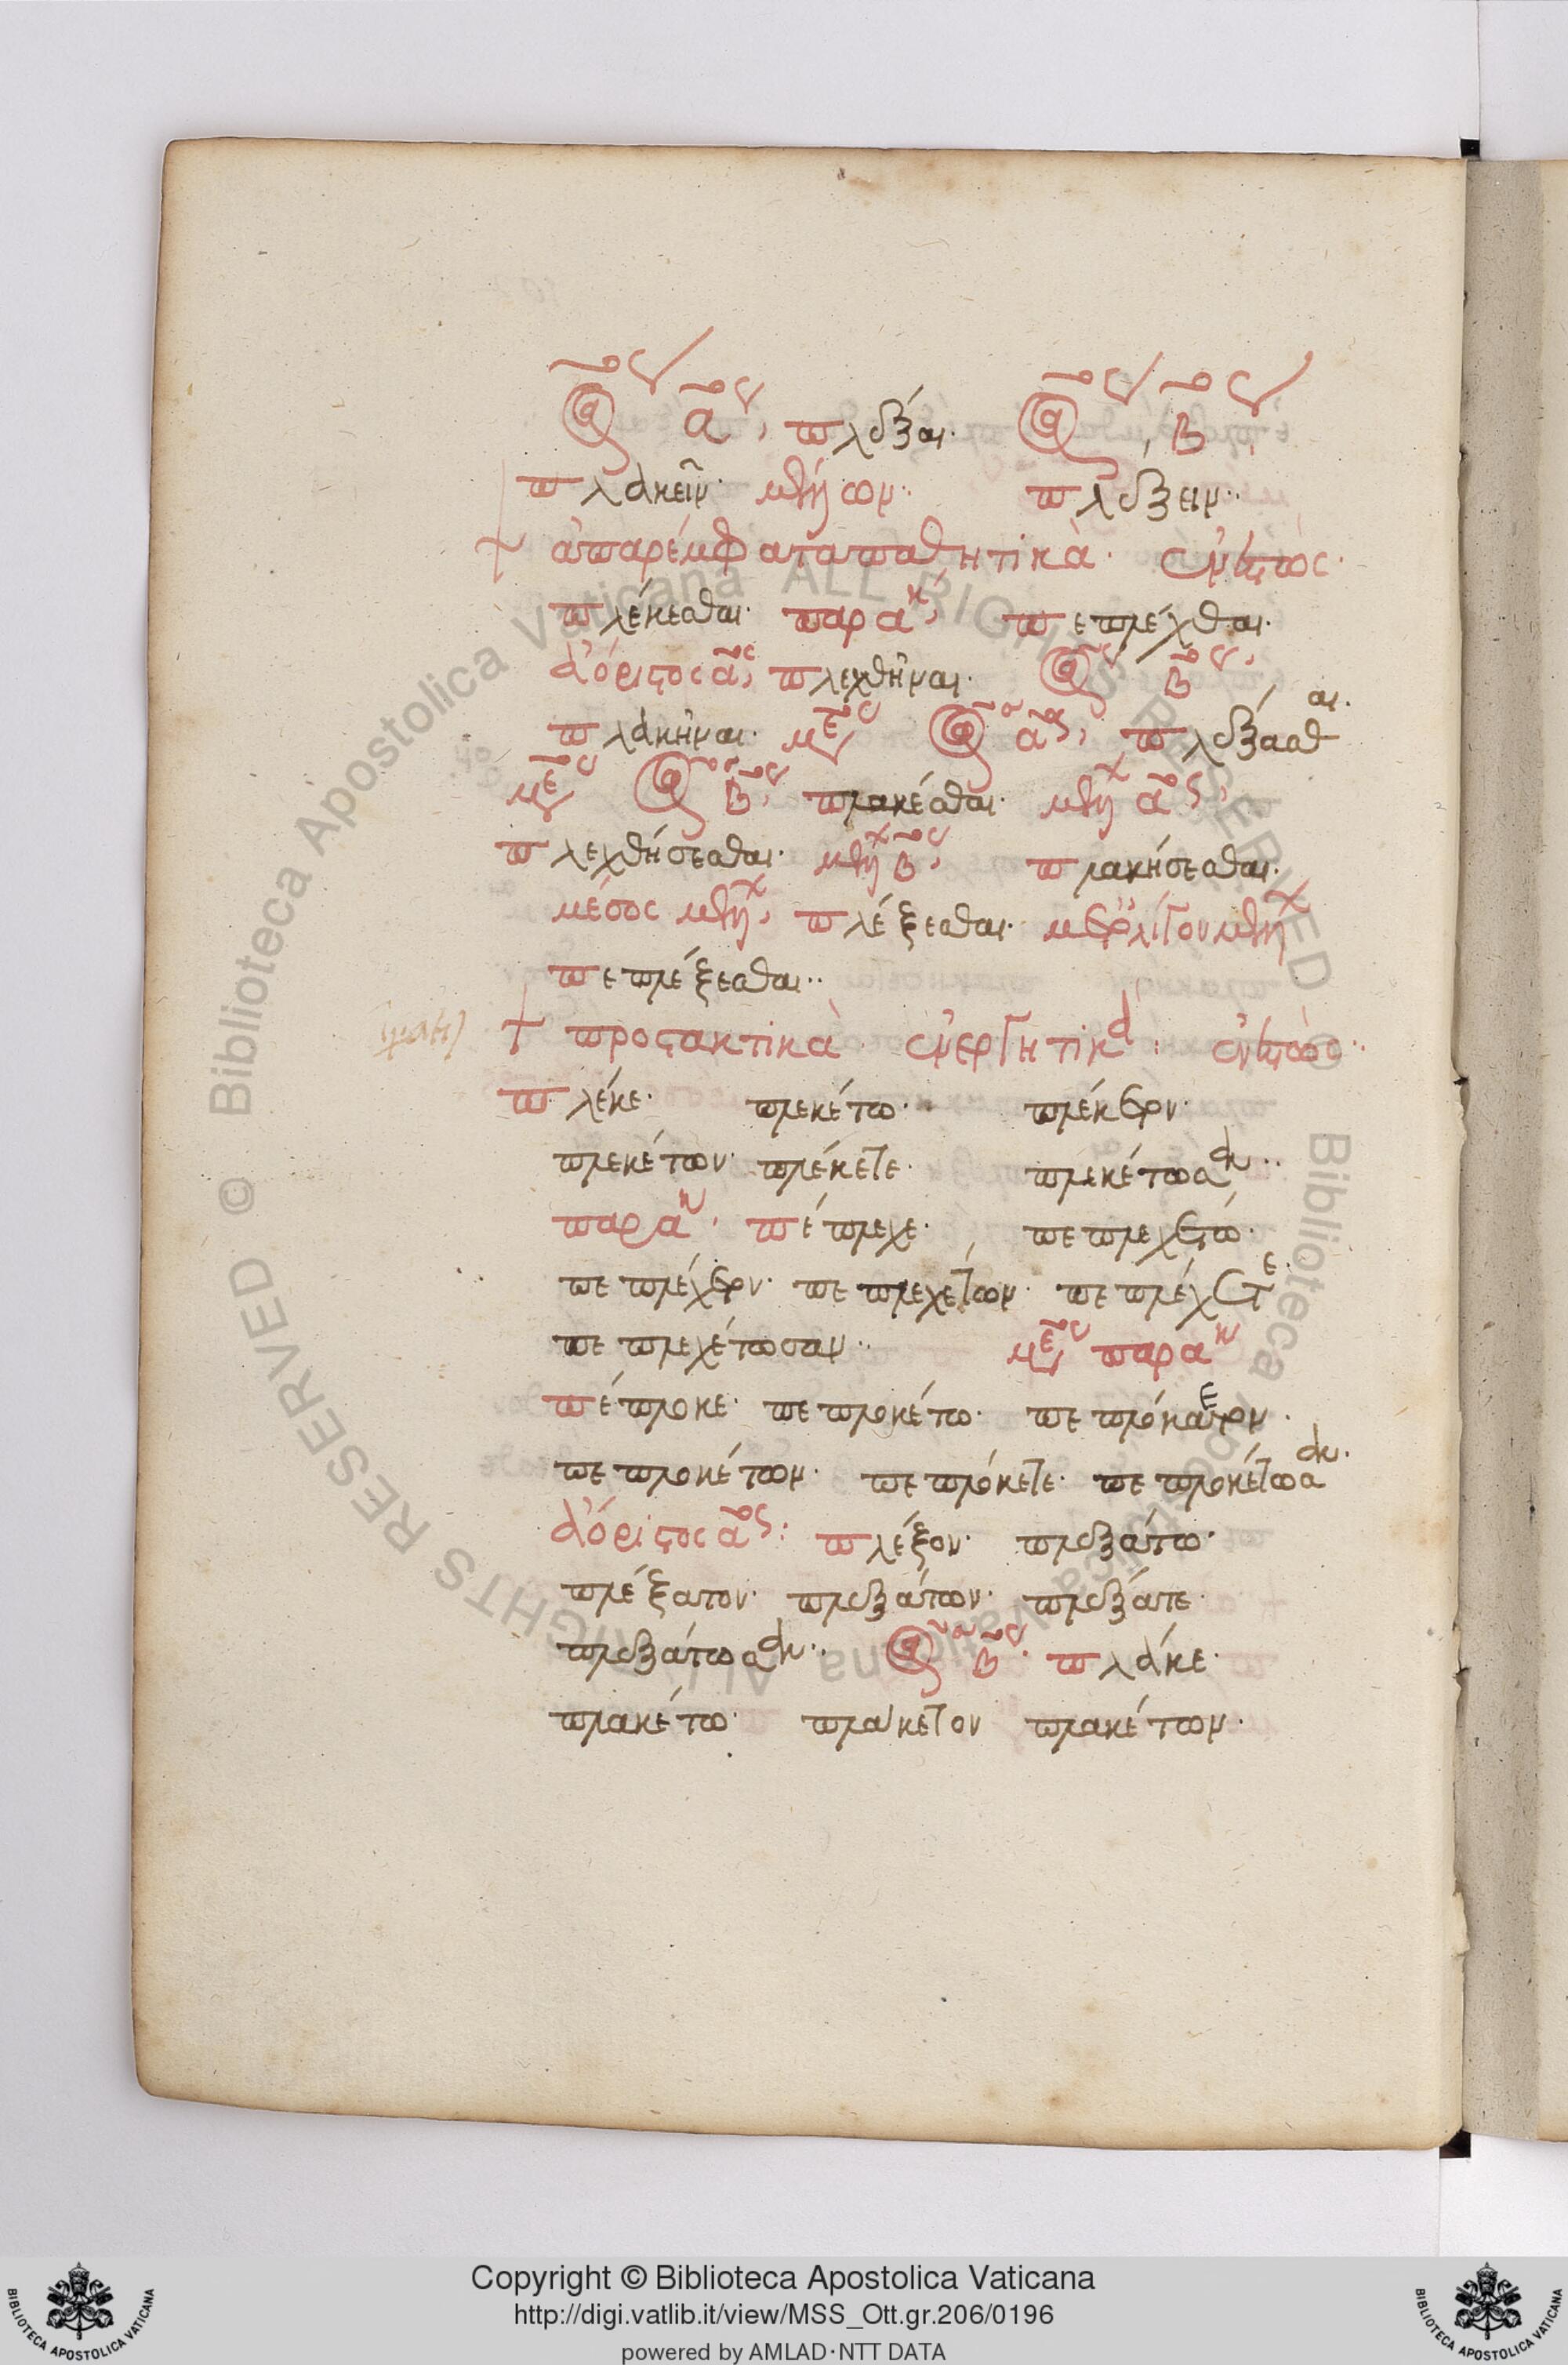 πλέξαι·
πλακεῖν· πλέξειν··
+ ἀπαρέμφατα παθητικὰ· ἐνεστὼς·
πλέκεσθαι· παρακ πεπλέχθαι·
ἀόριστος α̅ος πλεχθῆναι· β̅ος
πλακῆναι· α̅ος πλέξασθαι·
β̅ος πλακέσθαι· α̅ος
πλεχθήσεσθαι· β̅ος πλακήσεσθαι·
μέσος πλέξεσθαι·
πεπλέξεσθαι··
+ προστακτικὰ ἐνεργητικά: ἐνεστὼς··
πλέκε· πλεκέτω· πλέκετον·
πλεκέτων· πλέκετε· πλεκέτωσαν··
παρακ· πέπλεχε· πεπλεχέτω·
πεπλέχετον· πεπλεχέτων· πεπλέχετε·
πεπλεχέτωσαν·· παρακ
πέπλοκε· πεπλοκέτω· πεπλόκετον·
πεπλοκέτων· πεπλόκετε· πεπλοκέτωσαν·
ἀόριστος α̅ος: πλέξον· πλεξάτω·
πλέξατον· πλεξάτων· πλεξάτε·
πλεξάτωσαν·· β̅ος· πλάκε·
πλακέτω· πλάκετον πλακέτων·
Copyright © Biblioteca Apostolica Vaticana
http://digi.vatlib.it/view/MSS_Ott.gr.206/0196
powered by AMLAD·NTT DATA
BIBLIOTECA APOSTOLICA VATICANA
BIBLIOTECA APOSTOLICA VATICANA
© Biblioteca Apostolica Vaticana ALL RIGHTS RESERVED
© Biblioteca Apostolica Vaticana ALL RIGHTS RESERVED